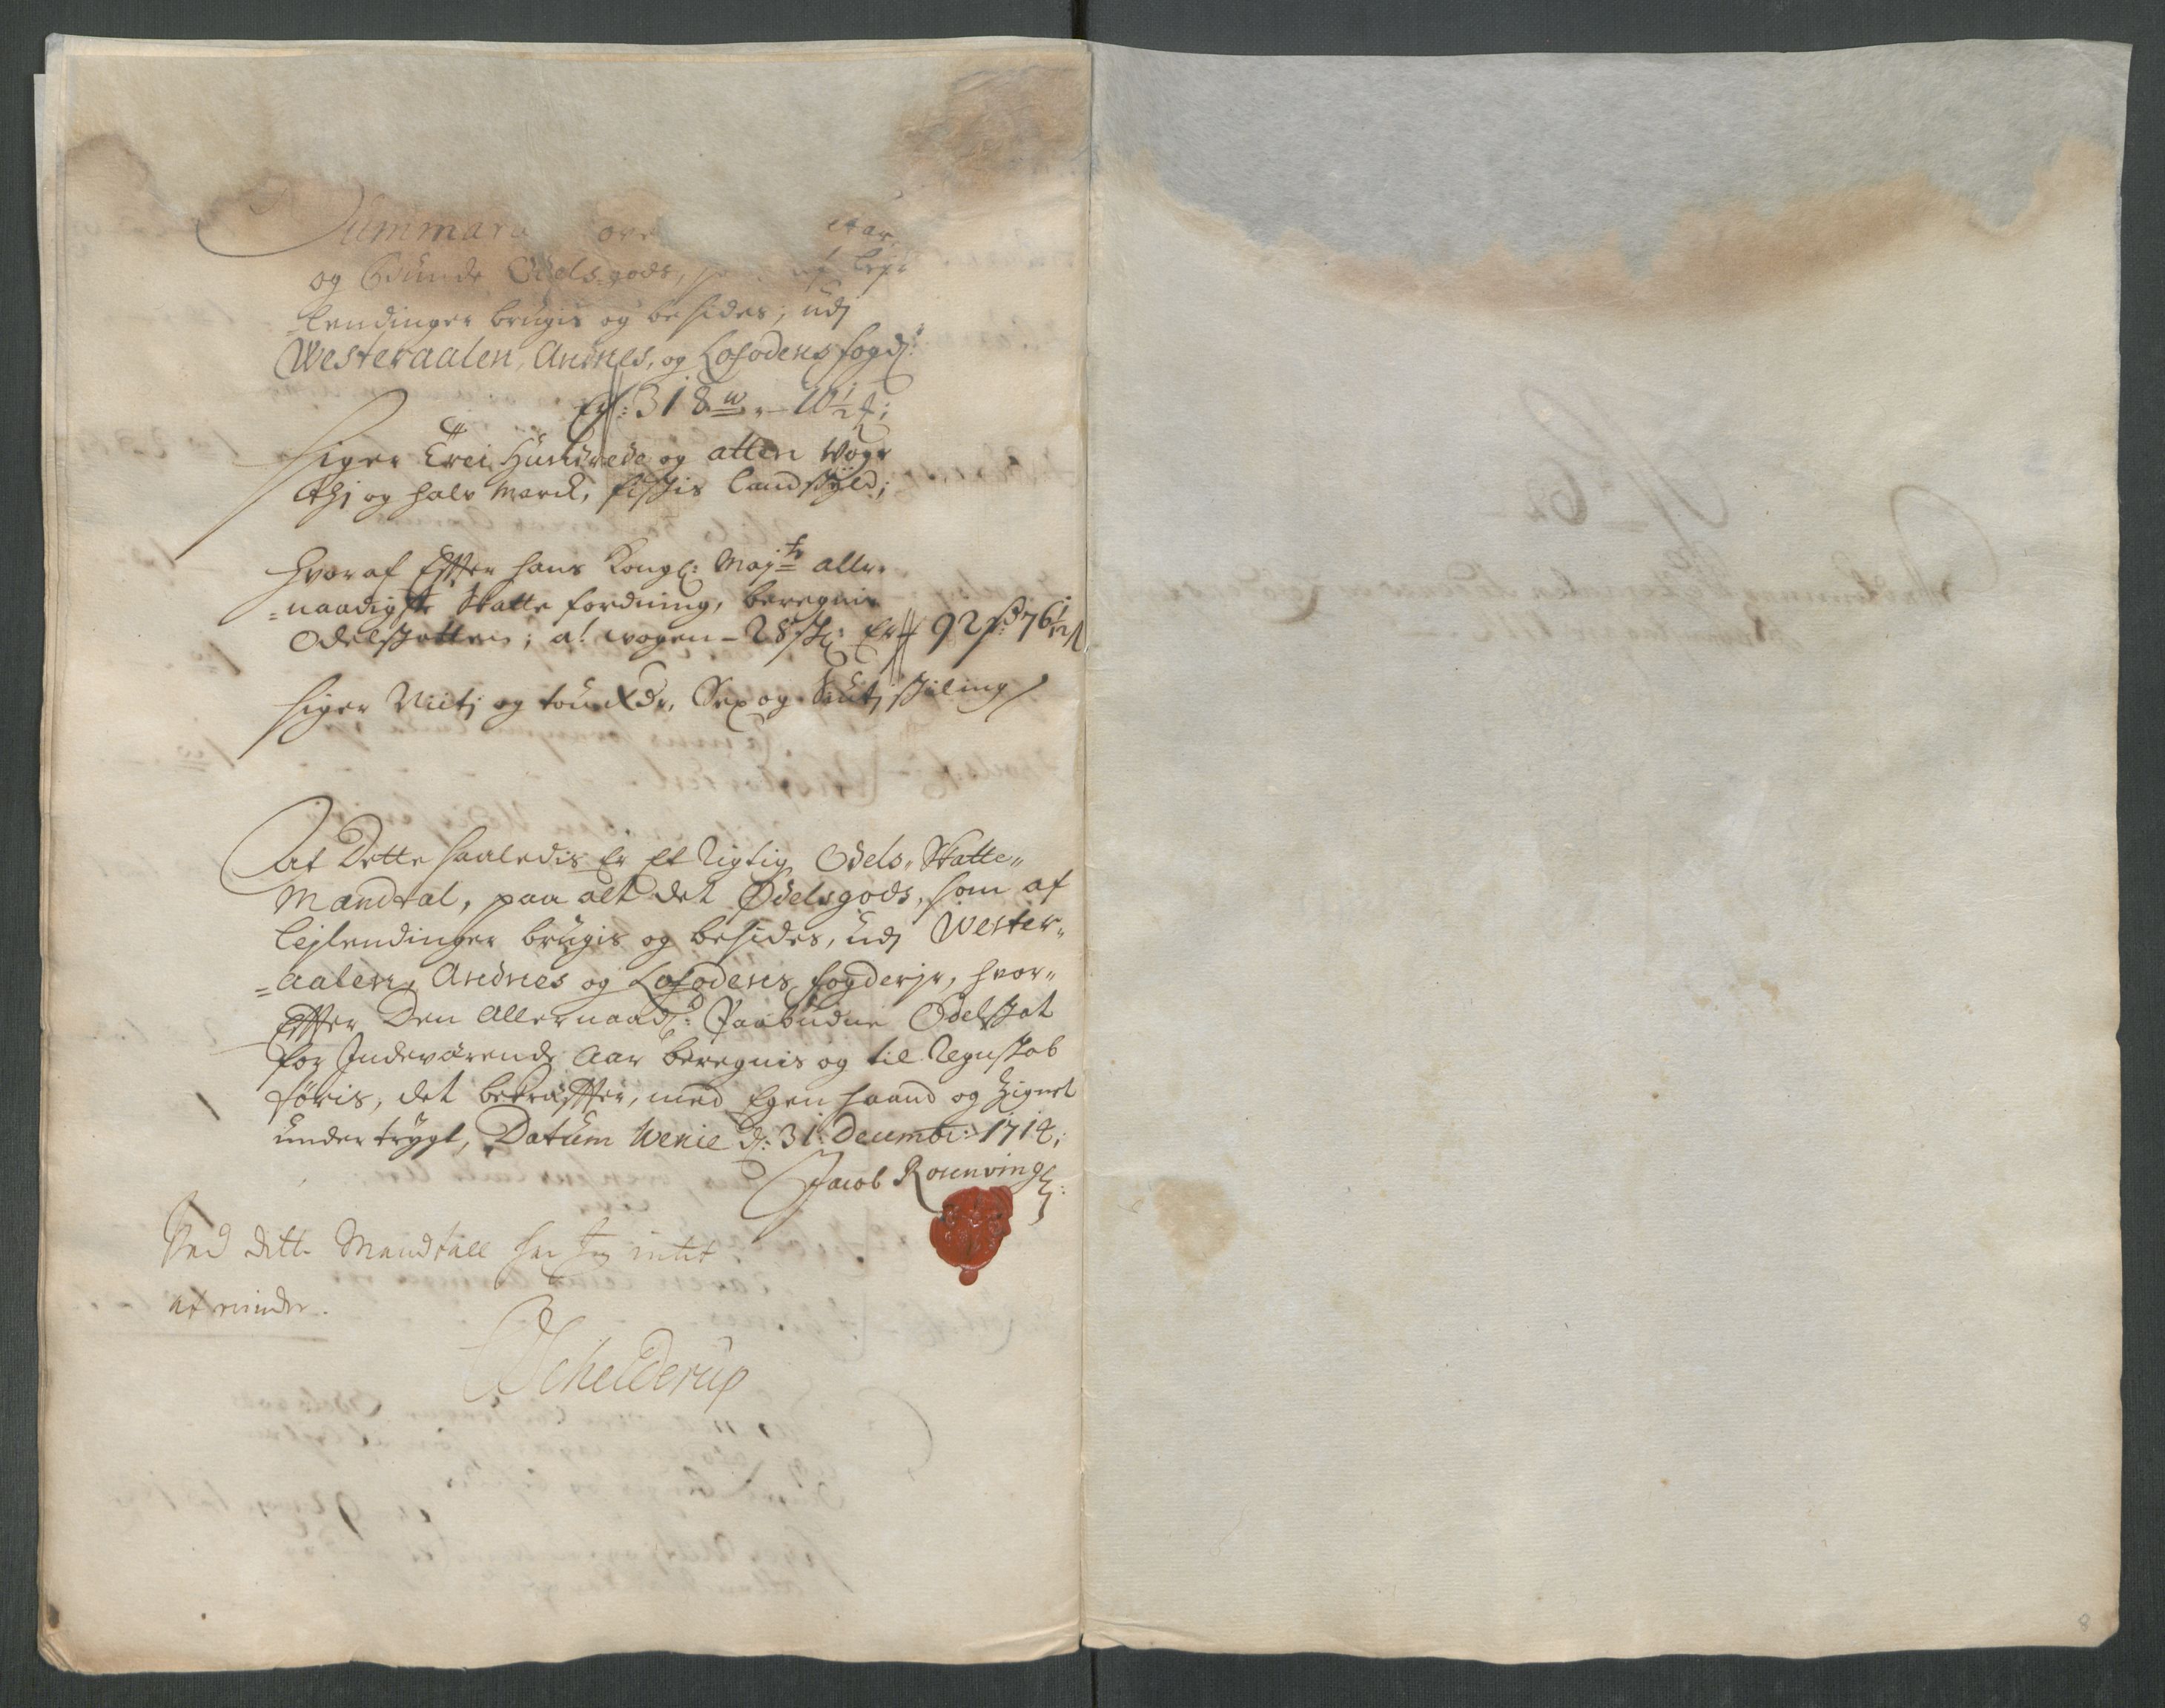 Summara ove
og Bunde Odelsgods, af Lej
-lendinger brugis og besides, udj
Westeraalen, Andnes, og Lofodens fogd:
Er: 318 w - 10½ ;
siger Trei Hundrede og atten Woge
thj og halv Marck, fiskis Landskyld;
hvor af Effter hans Kongl: Maj:ts aller
=naadigste Skatte fordning, beregnis
Odelskatten; a! wogen - 28 sk: Er 92 76½
siger Niitj og tou Rdr, Sex og Siutj skiling
At Dette saaledis Er Et Rigtig Odels Skatte
Mandtal, paa alt det Odelsgods, som af
Lejlendinger brugis og besides, udj Wester-
=aalen, Andnes og Lofodens fogderje, hvor
Effter Den Allernaad: Paabudne Odelskat
for Indeværende Aar beregnis og til Regnskab
føris, det bekræffter, med Egen haand og Zignet
undertrygt, Datum Werie d: 31: Decembr: 1714;
Jacob Rosenving:
Ved dette Mandtall har Jeg intet
at minder.
Schelderup
8